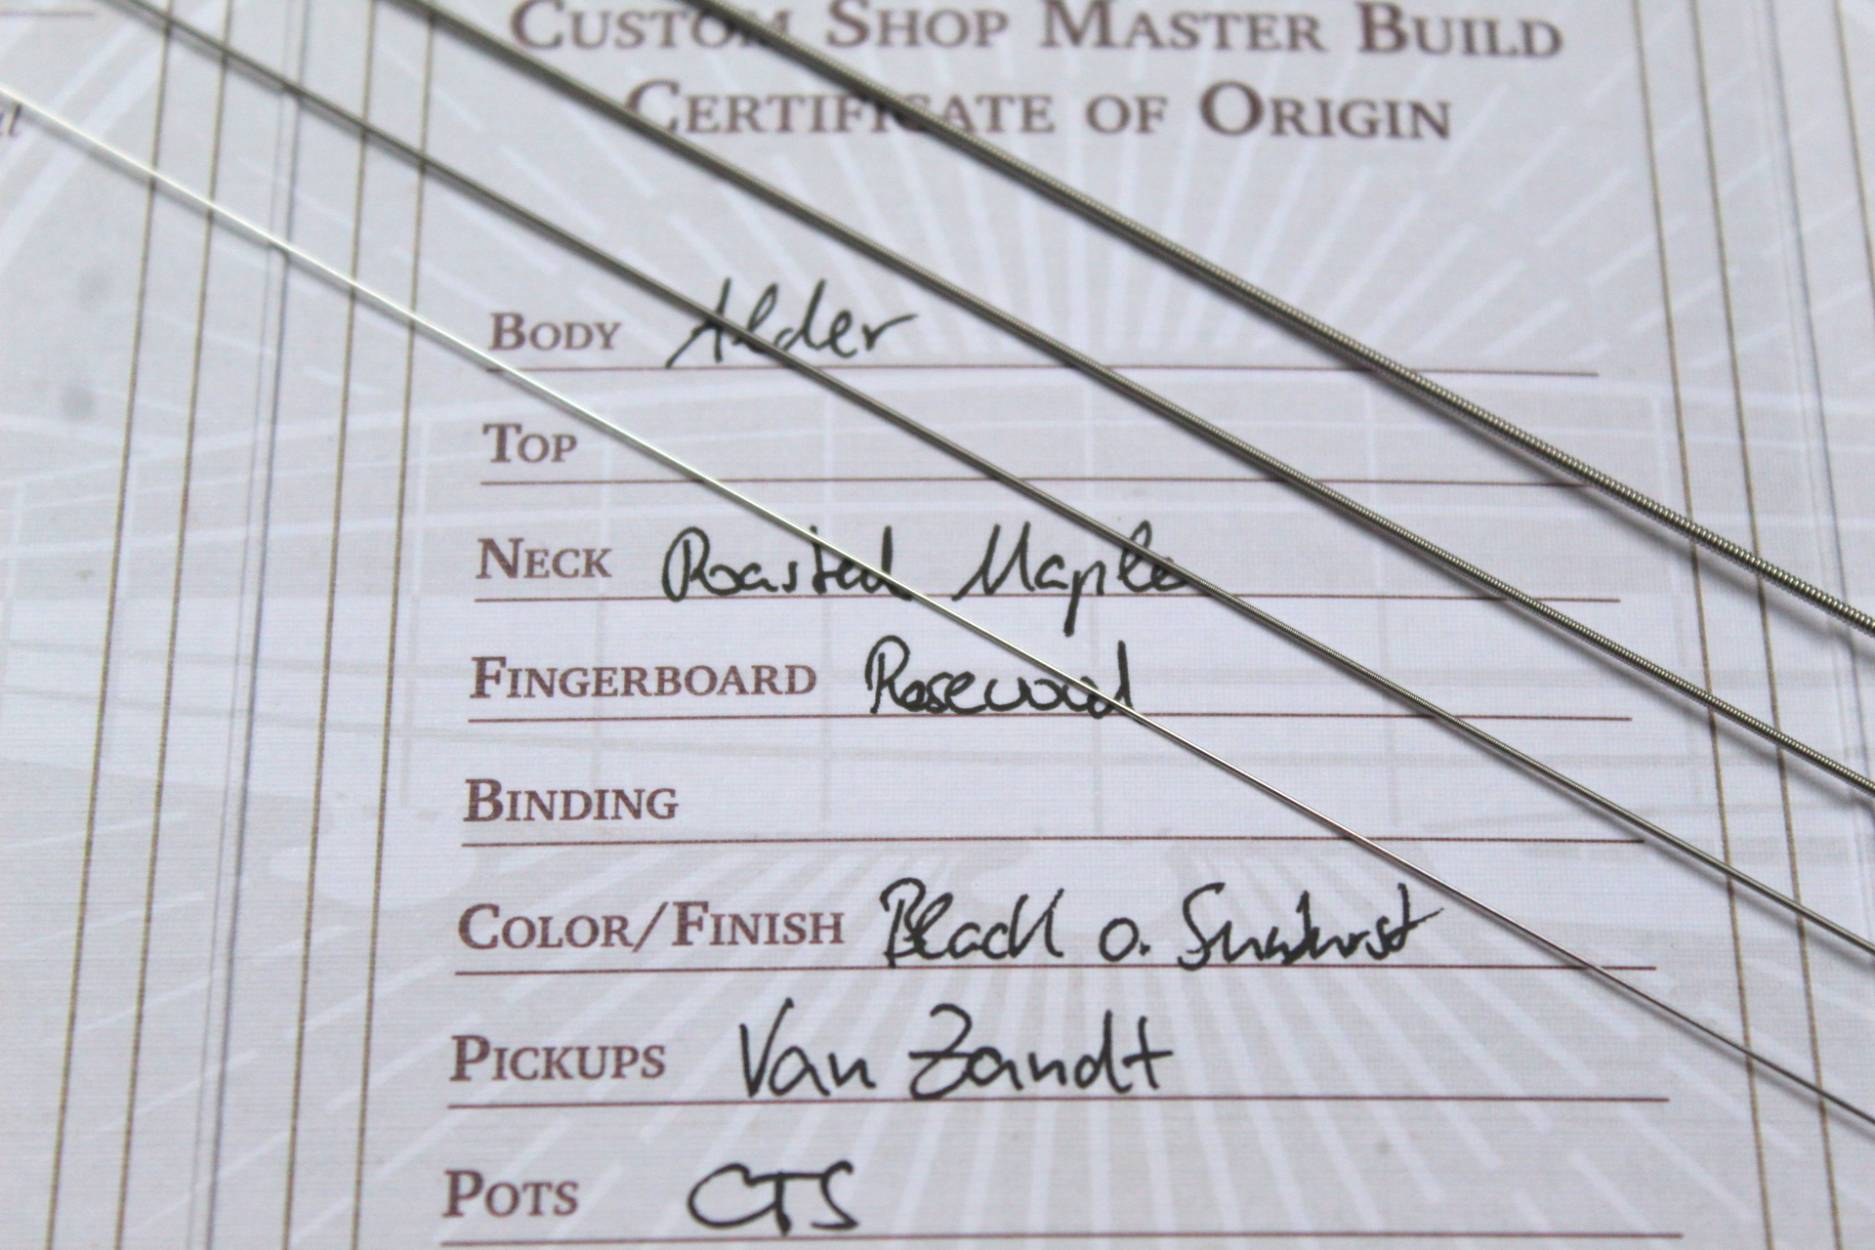 CUSTOM SHOP MASTER BUILD
CERTIFICATE OF ORIGIN
BODY Alder
TOP
NECK Roasted Maple
FINGERBOARD Rosewood
BINDING
COLOR/FINISH Black o. Sunburst
PICKUPS Van Zandt
POTS CTS